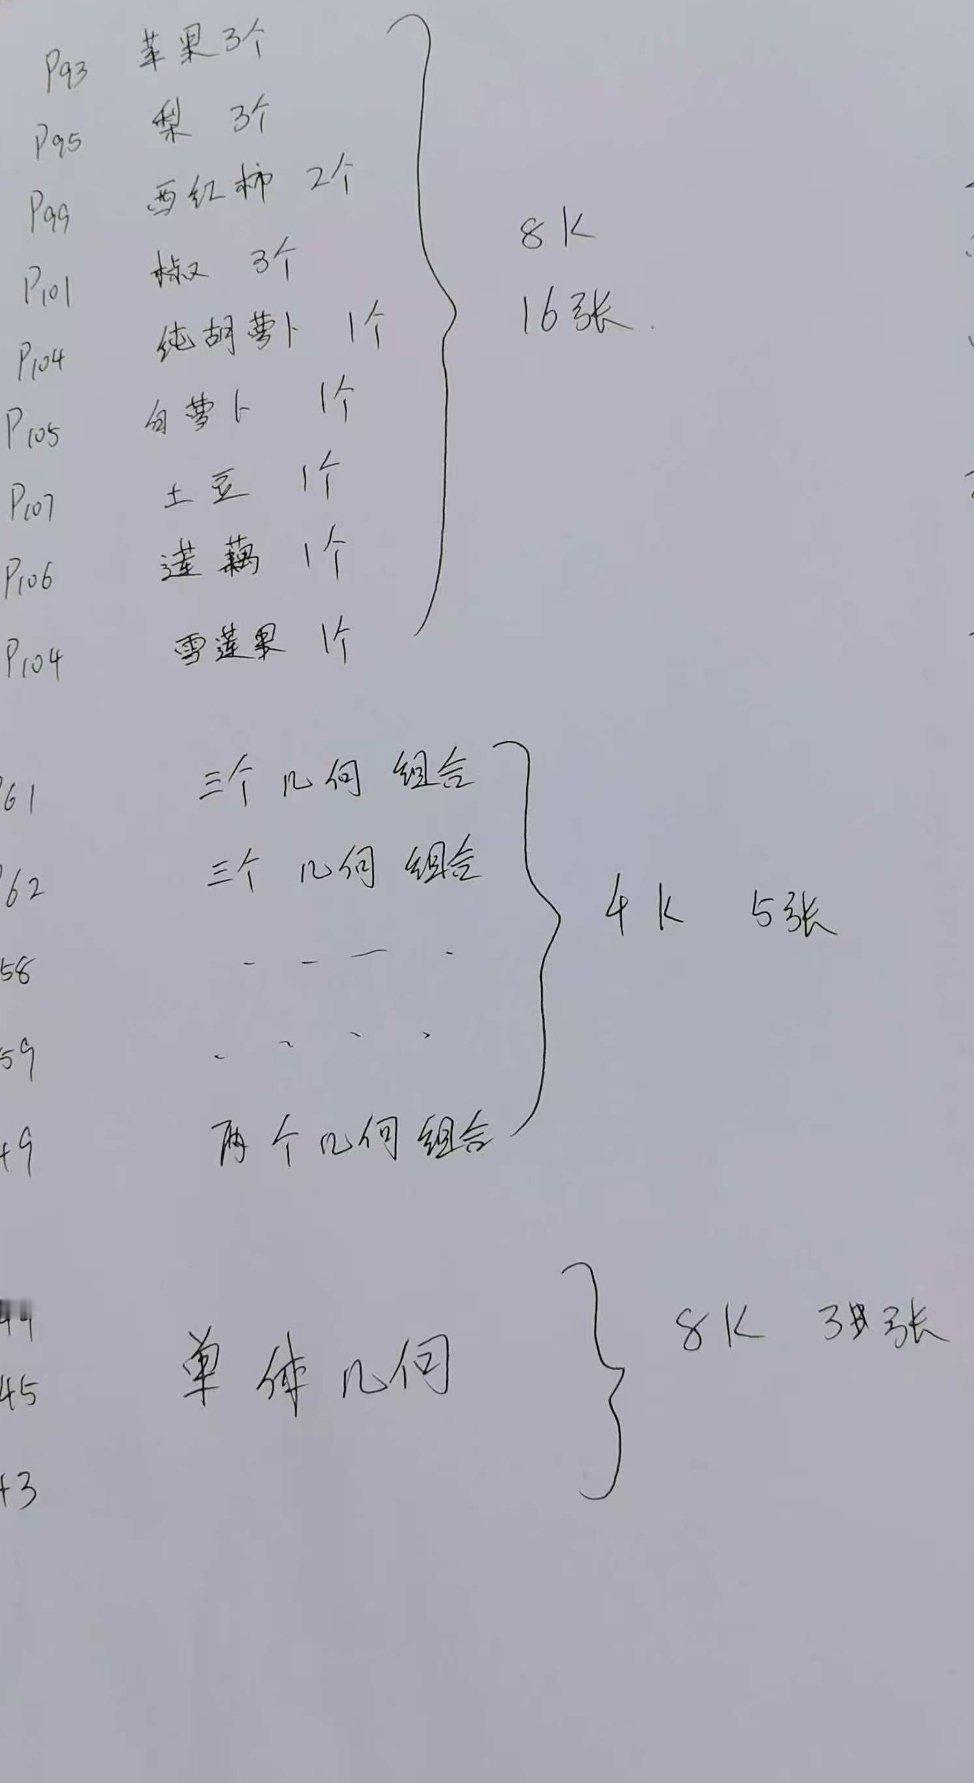 P93 苹果3个
P95 梨 3个
P99 西红柿 2个
P101 椒 3个
8K
16张
P104 纯胡萝卜 1个
P105 白萝卜 1个
P107 土豆 1个
P106 莲藕 1个
P104 雪莲果 1个
61 三个几何组合
62 三个几何组合
4K 5张
58
59
49 两个几何组合
44
8K 3张
45 单体几何
43